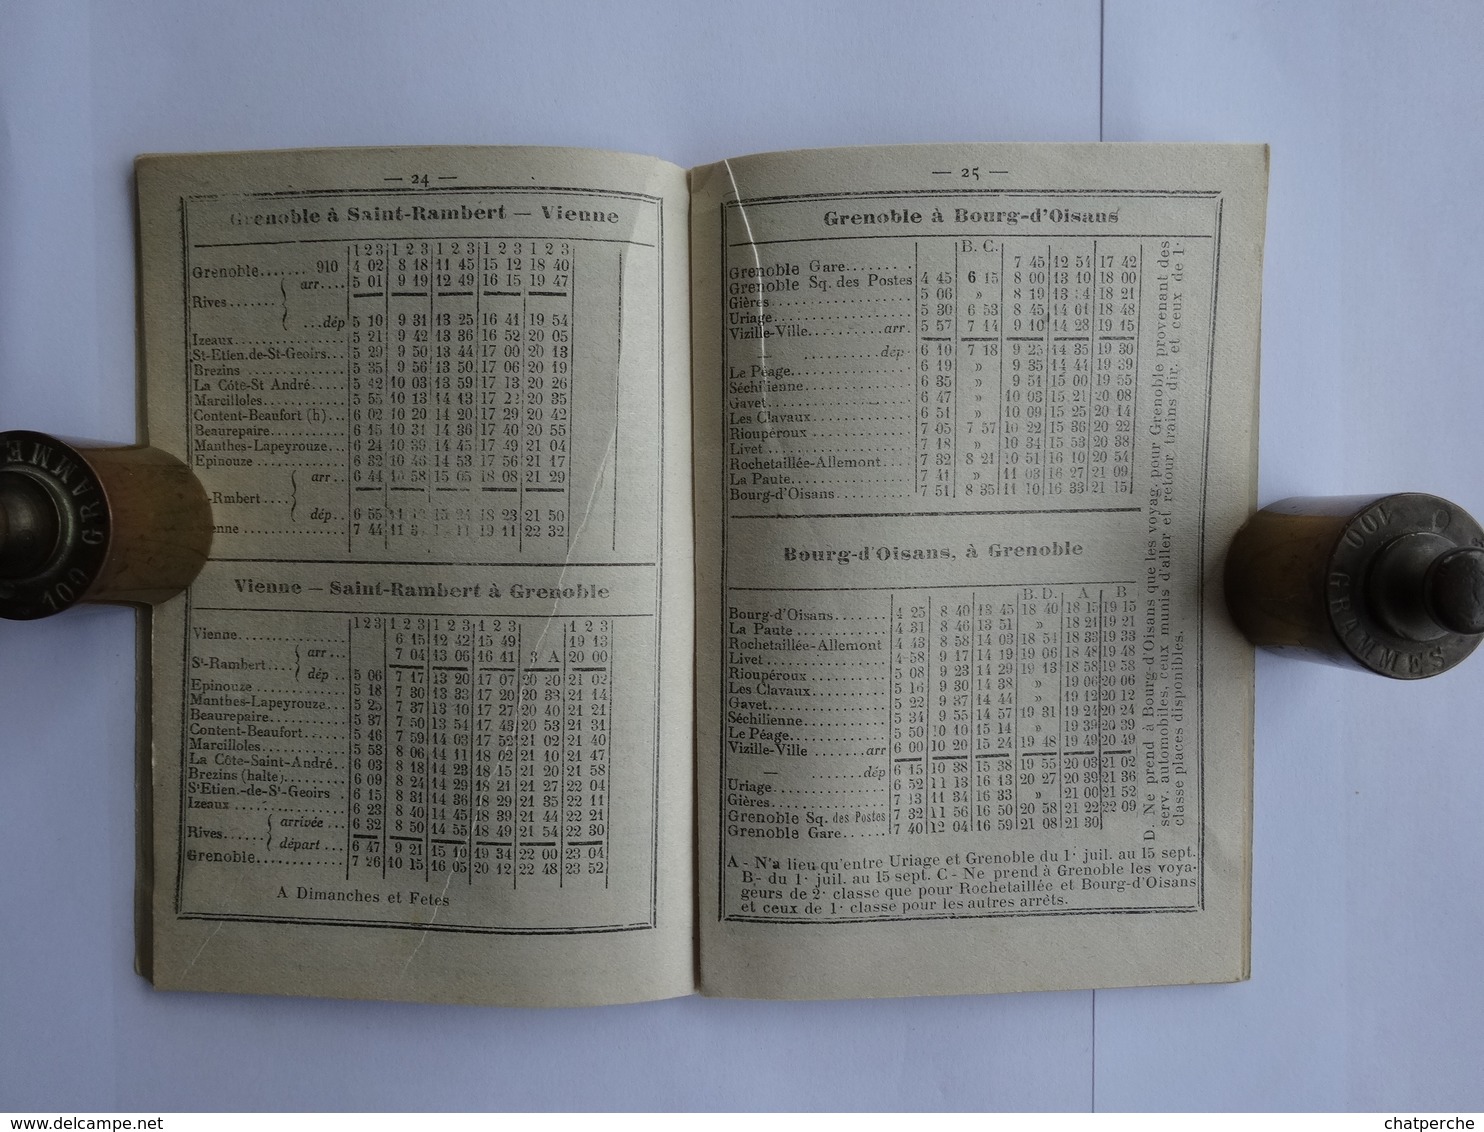 — 24 —
Grenoble à Saint-Rambert — Vienne
1 2 3 1 2 3 1 2 3 1 2 3 1 2 3
Grenoble....... 910 4 02 8 18 11 45 15 12 18 40
arr.... 5 01 9 19 12 49 16 15 19 47
Rives .......
...dép 5 10 9 31 13 25 16 41 19 54
Izeaux 5 21 9 42 13 36 16 52 20 05
St-Etien.de-St-Geoirs... 5 29 9 50 13 44 17 00 20 13
Brezins 5 35 9 56 13 50 17 06 20 19
La Côte-St André..... 5 42 10 03 13 59 17 13 20 26
Marcilloles 5 55 10 13 14 13 17 22 20 35
Content-Beaufort (h)... 6 02 10 20 14 20 17 29 20 42
Beaurepaire 6 15 10 31 14 36 17 40 20 55
Manthes-Lapeyrouze... 6 24 10 39 14 45 17 49 21 04
Epinouze 6 32 10 46 14 53 17 56 21 17
arr.... 6 44 10 58 15 05 18 08 21 29
-Rmbert ....
dép... 6 55 18 23 21 50
enne 7 44 19 11 22 32
Vienne — Saint-Rambert à Grenoble
1 2 3 1 2 3 1 2 3 1 2 3 1 2 3
Vienne 6 15 12 42 15 49 19 13
arr... 7 04 13 06 16 41 3 A 20 00
St-Rambert....
dép .. 5 06 7 17 13 20 17 07 20 20 21 02
Epinouze 5 18 7 30 13 33 17 20 20 33 21 14
Manthes-Lapeyrouze... 5 25 7 37 13 40 17 27 20 40 21 21
Beaurepaire 5 37 7 50 13 54 17 43 20 53 21 31
Content-Beaufort 5 46 7 59 14 03 17 52 21 02 21 40
Marcilloles 5 53 8 06 14 11 18 02 21 10 21 47
La Côte-Saint-André.. 6 03 8 18 14 23 18 15 21 20 21 58
Brezins (halte) 6 09 8 24 14 29 18 21 21 27 22 04
St Etien.-de-St-Geoirs . 6 15 8 31 14 36 18 29 21 35 22 11
Izeaux 6 23 8 40 14 45 18 39 21 44 22 21
arrivée ... 6 32 8 50 14 55 18 49 21 54 22 30
Rives ......
départ... 6 47 9 21 15 10 19 34 22 00 23 04
Grenoble 7 26 10 15 16 05 20 12 22 48 23 52
A Dimanches et Fetes
— 25 —
Grenoble à Bourg-d'Oisans
B. C.
Grenoble Gare........ 7 45 12 54 17 42
Grenoble Sq. des Postes 4 45 6 15 8 00 13 10 18 00
Gières 5 06 » 8 19 18 21
Uriage 5 30 6 53 8 45 14 01 18 48
Vizille-Ville........arr. 5 57 7 14 9 10 14 23 19 15
— ........ dép. 6 10 7 18 9 25 14 35 19 30
Le Péage 6 19 » 9 35 14 44 19 39
Séchilienne 6 35 » 9 51 15 00 19 55
Gavet 6 47 » 10 03 15 21 20 08
Les Clavaux 6 51 » 10 09 15 25 20 14
Rioupéroux 7 05 7 57 10 22 15 36 20 22
Livet 7 18 » 10 34 15 53 20 38
Rochetaillée-Allemont... 7 32 8 21 10 51 16 10 20 54
La Paute 7 41 » 11 03 16 27 21 09
Bourg-d'Oisans 7 51 8 35 11 10 16 33 21 15
Bourg-d'Oisans, à Grenoble
B. D. A B
Bourg-d'Oisans 4 25 8 40 13 45 18 40 18 15 19 15
La Paute 4 31 8 46 13 51 » 18 21 19 21
Rochetaillée-Allemont 4 43 8 58 14 03 18 54 18 33 19 33
Livet 4 58 9 17 14 19 19 06 18 48 19 48
Rioupéroux 5 08 9 23 14 29 19 13 18 58 19 53
Les Clavaux 5 16 9 30 14 38 » 19 06 20 06
Gavet 5 22 9 37 14 44 » 19 12 20 12
Séchilienne 5 34 9 55 14 57 19 31 19 24 20 24
Le Péage 5 50 10 10 15 14 » 19 39 20 39
Vizille-Ville ........arr 6 00 10 20 15 24 19 48 19 49 20 49
— dép 6 15 10 38 15 38 19 55 20 03 21 02
Uriage 6 52 11 13 16 13 20 27 20 39 21 36
Gières 7 13 11 34 16 33 » 21 00 21 52
Grenoble Sq. des Postes 7 32 11 56 16 50 20 58 21 22 22 09
Grenoble Gare...... 7 40 12 04 16 59 21 08 21 30
A - N'a lieu qu'entre Uriage et Grenoble du 1r juil. au 15 sept.
B - du 1r juil. au 15 sept. C - Ne prend à Grenoble les voya-
geurs de 2e classe que pour Rochetaillée et Bourg-d'Oisans
et ceux de 1e classe pour les autres arrêts.
D. Ne prend à Bourg-d'Oisans que les voyag. pour Grenoble provenant des
serv. automobiles, ceux munis d'aller et retour trains dir. et ceux de 1e
classe places disponibles.
100 GRAMMES
100 GRAMMES
delcampe.net
chatperche